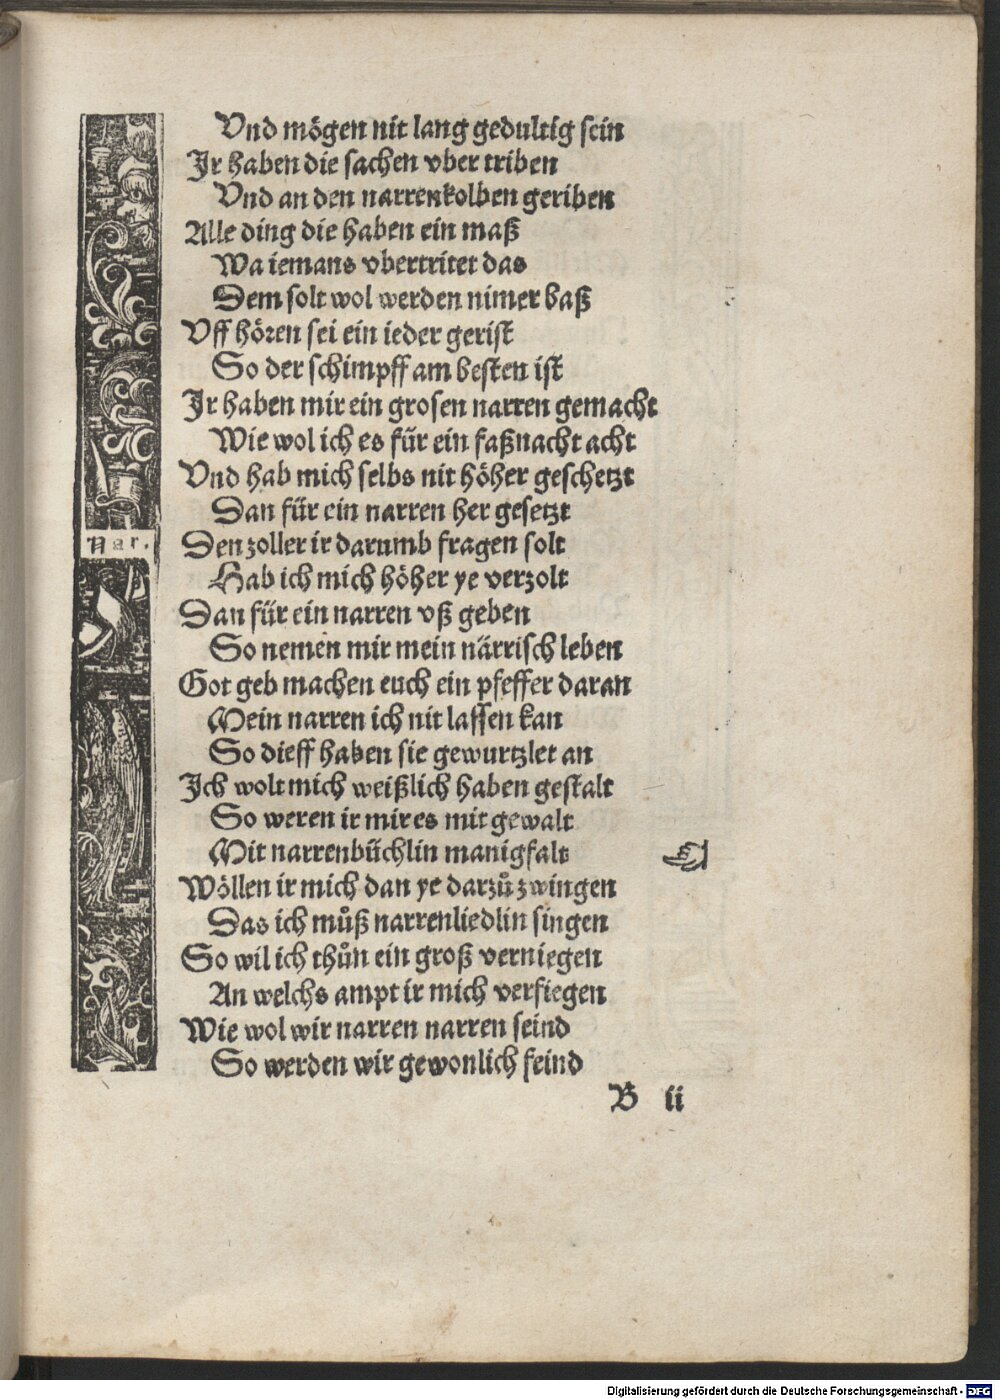 Vnd mögen nit lang gedultig sein
Jr haben die sachen vber triben
Vnd an den narrenkolben geriben
Alle ding die haben ein maß
Wa iemans vbertritet das
Dem solt wol werden nimer baß
Vff hören sei ein ieder gerist
So der schimpff am besten ist
Jr haben mir ein grosen narren gemacht
Wie wol ich es für ein faßnacht acht
Vnd hab mich selbs nit höher geschetzt
Dan für ein narren her gesetzt
Nar.
Den zoller ir darumb fragen solt
Hab ich mich höher ye verzolt
Dan für ein narren vß geben
So nemen mir mein närrisch leben
Got geb machen euch ein pfeffer daran
Mein narren ich nit lassen kan
So dieff haben sie gewurtzlet an
Jch wolt mich weißlich haben gestalt
So weren ir mir es mit gewalt
Mit narrenbüchlin manigfalt
Wöllen ir mich dan ye darzů zwingen
Das ich můß narrenliedlin singen
So wil ich thůn ein groß verniegen
An welchs ampt ir mich verfiegen
Wie wol wir narren narren seind
So werden wir gewonlich feind
B ii
Digitalisierung gefördert durch die Deutsche Forschungsgemeinschaft - DFG